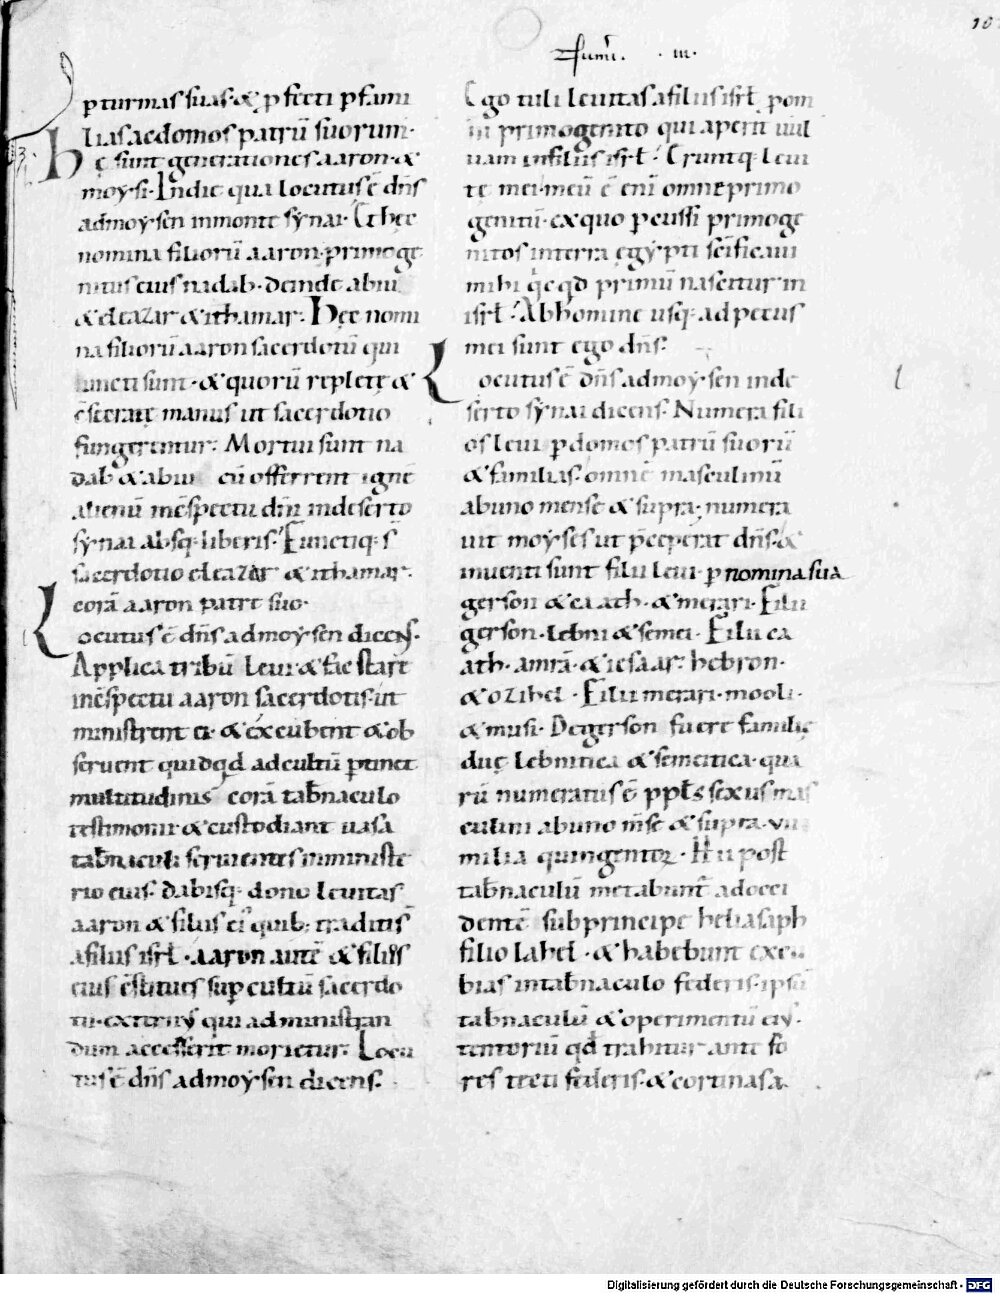 Numeri. · III ·
p turmas suas· & pfecti p fami
lias ac domos patrū suorum·
Hę sunt generationes aaron· &
moysi· In die qua locutus ē dn̄s
ad moysen in monte synai· Et hęc
nomina filiorū aaron· primoge
nitus eius nadab· deinde abiu
& eleazar & ithamar· Hęc nomi
na filiorū aaron sacerdotū qui
uncti sunt· & quorū repletę &
c̄secratę manus ut sacerdotio
fungerentur· Mortui sunt na
dab & abiu cū offerrent ignē
alienū in c̄spectu dn̄i in deserto
synai absq; liberis· Functiq; s̄
sacerdotio eleazar & ithamar·
corā aaron patre suo·
Locutus ē dn̄s ad moysen dicens·
Applica tribū leui & fac stare
in c̄spectu aaron sacerdotis ut
ministrent ei· & excubent & ob
seruent quidqd ad cultū ptinet
multitudinis corā tab̄naculo
testimonii· & custodiant uasa
tab̄naculi seruientes in ministe
rio eius· dabisq; dono leuitas
aaron & filiis ei' quib; traditi s̄
a filiis isrł· aaron autē & filios
eius c̄stitues sup cultū sacerdo
tii· externus qui ad ministran
dum accesserit morietur· Locu
tus ē dn̄s ad moysen dicens·
Ego tuli leuitas a filiis isrł p om
ni primogenito qui aperit uul
uam in filiis isrł· Eruntq; leui
tę mei· meū ē enī omne primo
genitū· ex quo pcussi primoge
nitos in terra egypti· sc̄ificaui
mihi qcqd primū nascitur in
isrł· Ab homine usq; ad pecus
mei sunt ego dn̄s·
Locutus ē dn̄s ad moysen in de
serto synai dicens· Numera fili
os leui p domos patrū suorū
& familias· omnē masculinū
ab uno mense & supra· numera
uit moyses ut p̄ceperat dn̄s· &
inuenti sunt filii leui· p nomina sua
gerson & caath· & merari· Filii
gerson· lebni & semei· Filii ca
ath· amrā· & iesaar· hebron·
& ozihel· Filii merari· mooli·
& musi· De gerson fuere familię
duę lebnitica & semeitica· qua
rū numeratus ē ppłs sexus mas
culini ab uno m̄se & supra· VII
milia quingentor̄· Hii post
tab̄naculū metabunt̄ ad occi
dentē sub principe heliasaph
filio lahel· & habebunt excu
bias in tab̄naculo federis· ipsū
tab̄naculū & operimentū ei'·
tentoriū qd trahitur ante fo
res tecti federis· & cortinas a